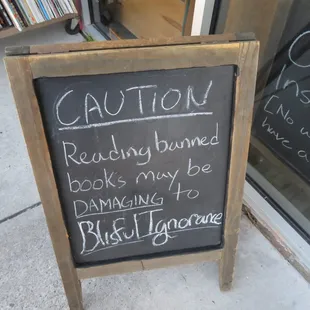 CAUTION
Reading banned
books may be
DAMAGING to
Blissful Ignorance
Ins
(No w
have a